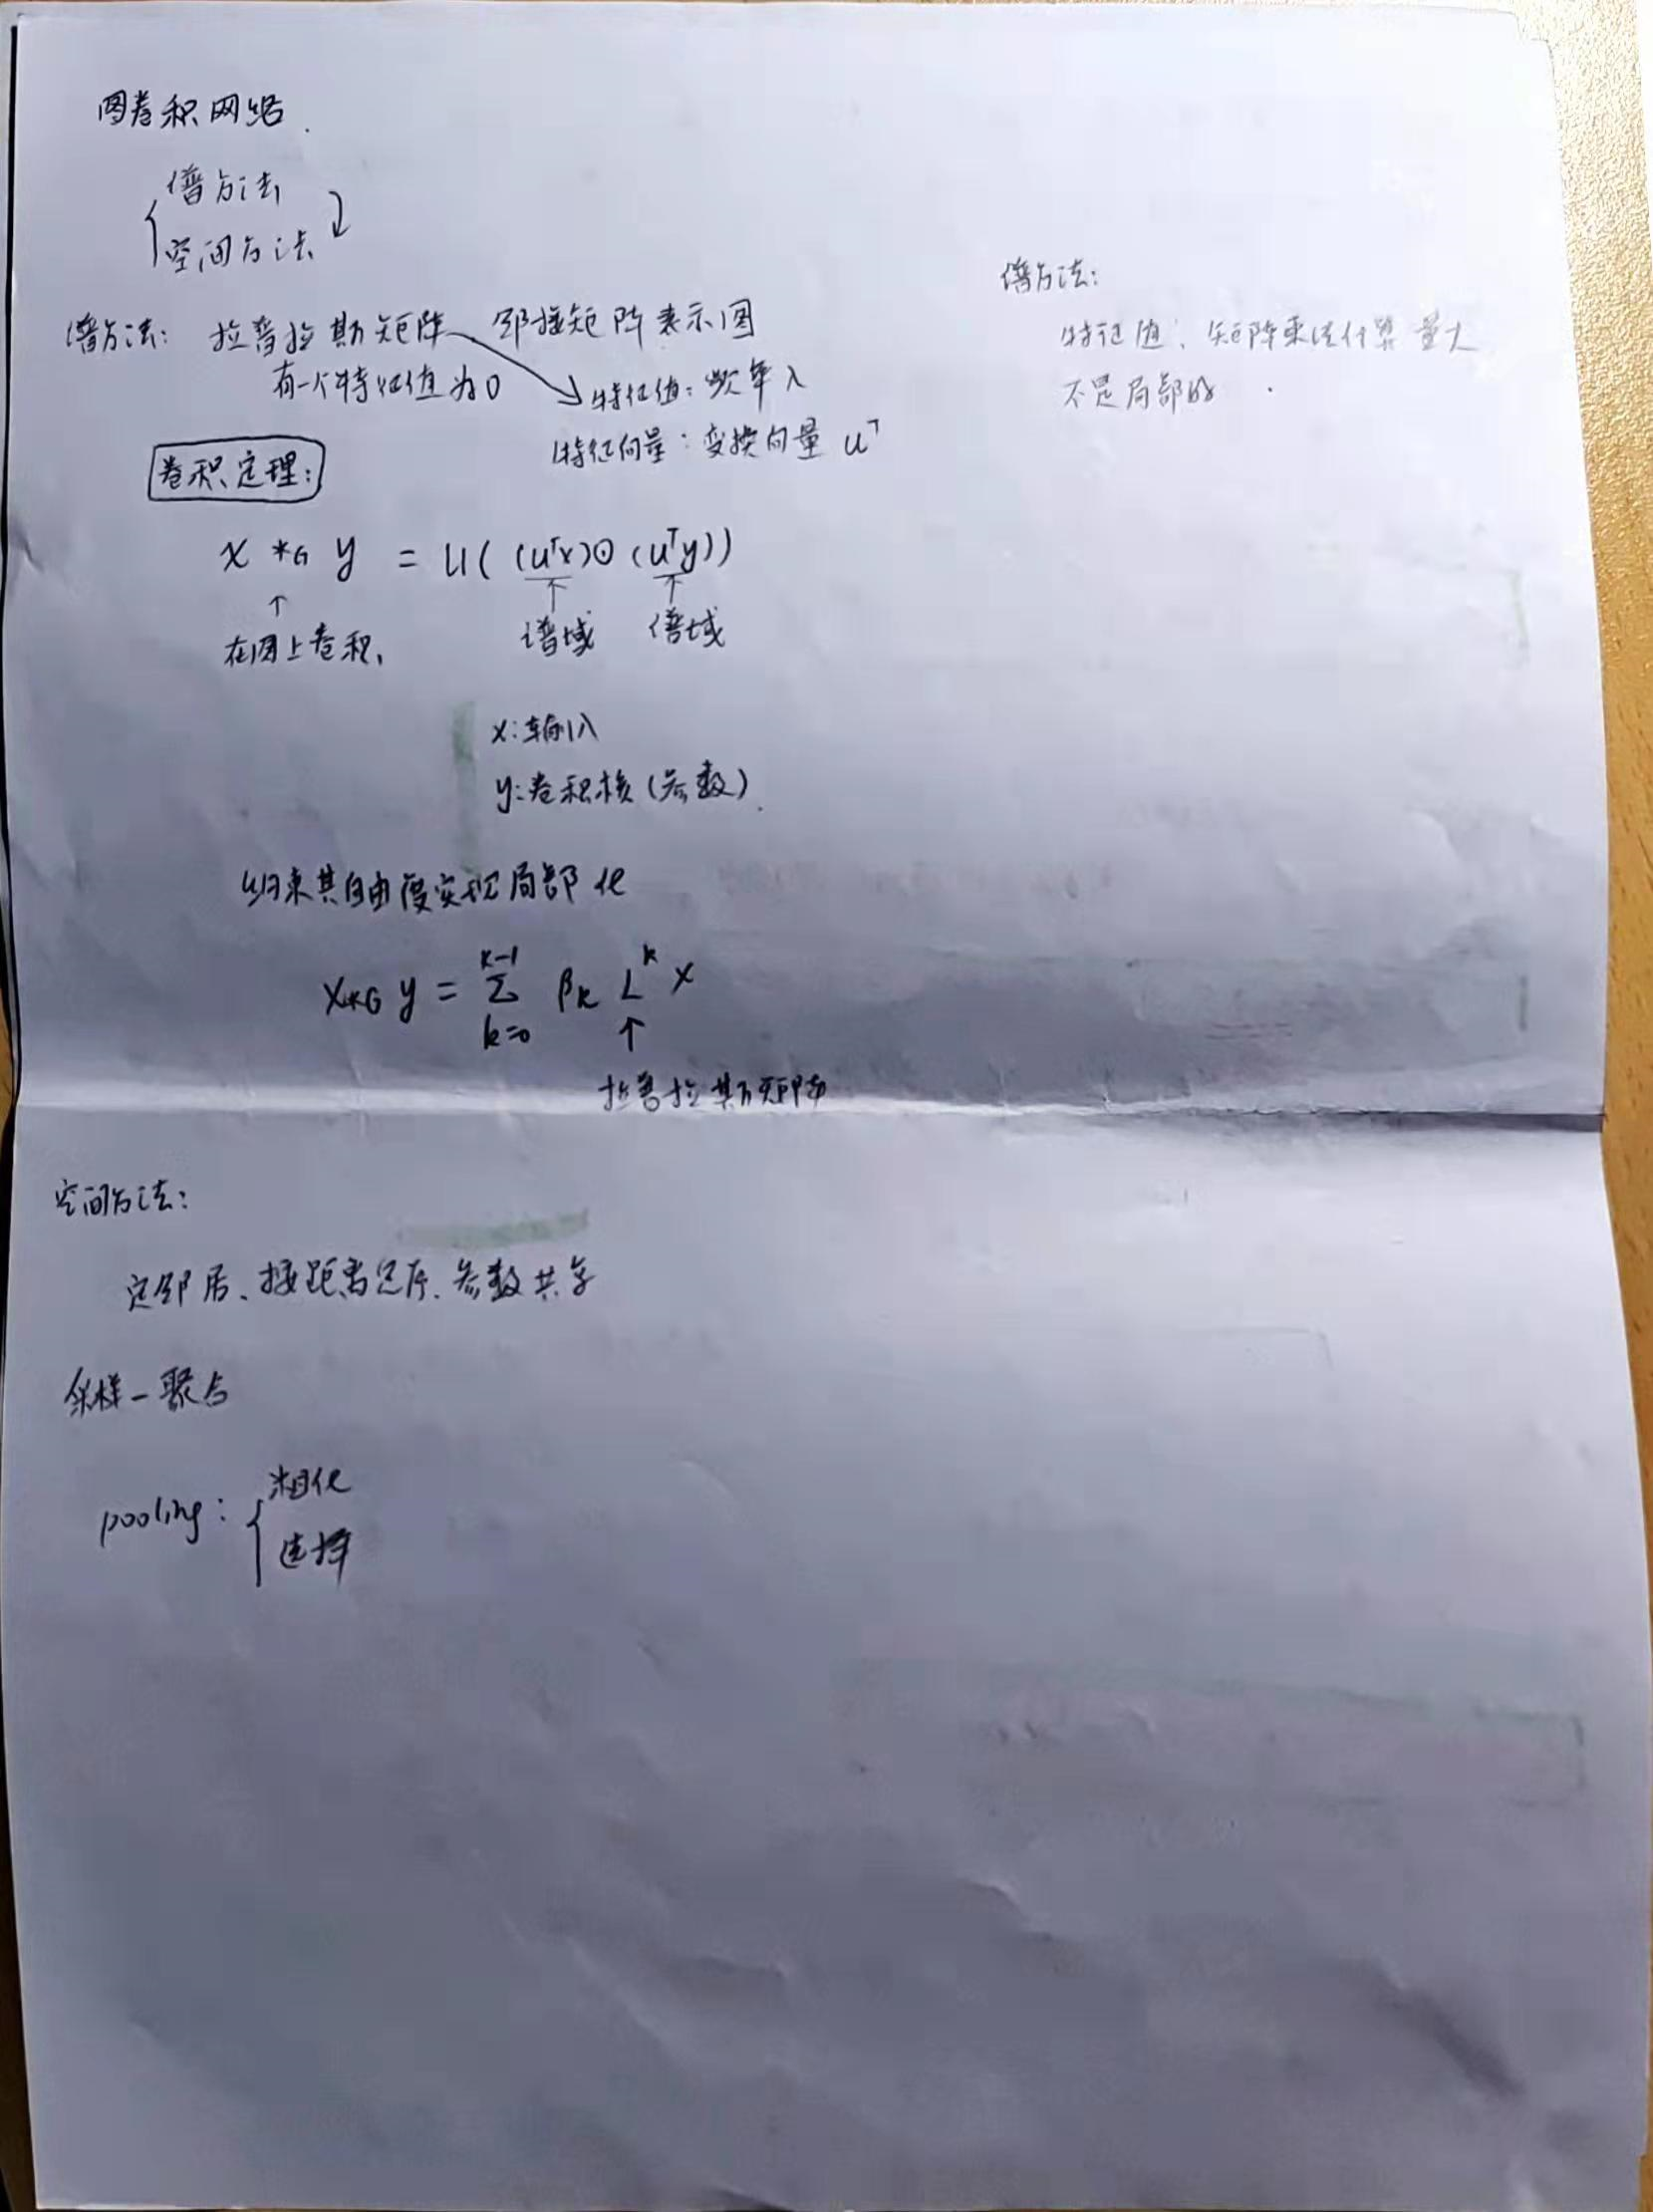 图卷积网络
谱方法
空间方法
谱方法: 拉普拉斯矩阵 邻接矩阵表示图
有一个特征值为0
特征值: 频率 λ
特征向量: 变换向量 U^T
卷积定理:
x *G y = U((U^T x)⊙(U^T y))
在图上卷积 谱域 谱域
x: 输入
y: 卷积核(参数)
约束其自由度实现局部化
x *G y = Σ_{k=0}^{K-1} β_k L^k x
拉普拉斯矩阵
空间方法:
定邻居、按距离定序、参数共享
采样-聚合
pooling:
粗化
选择
谱方法:
特征值、矩阵乘法计算量大
不是局部的